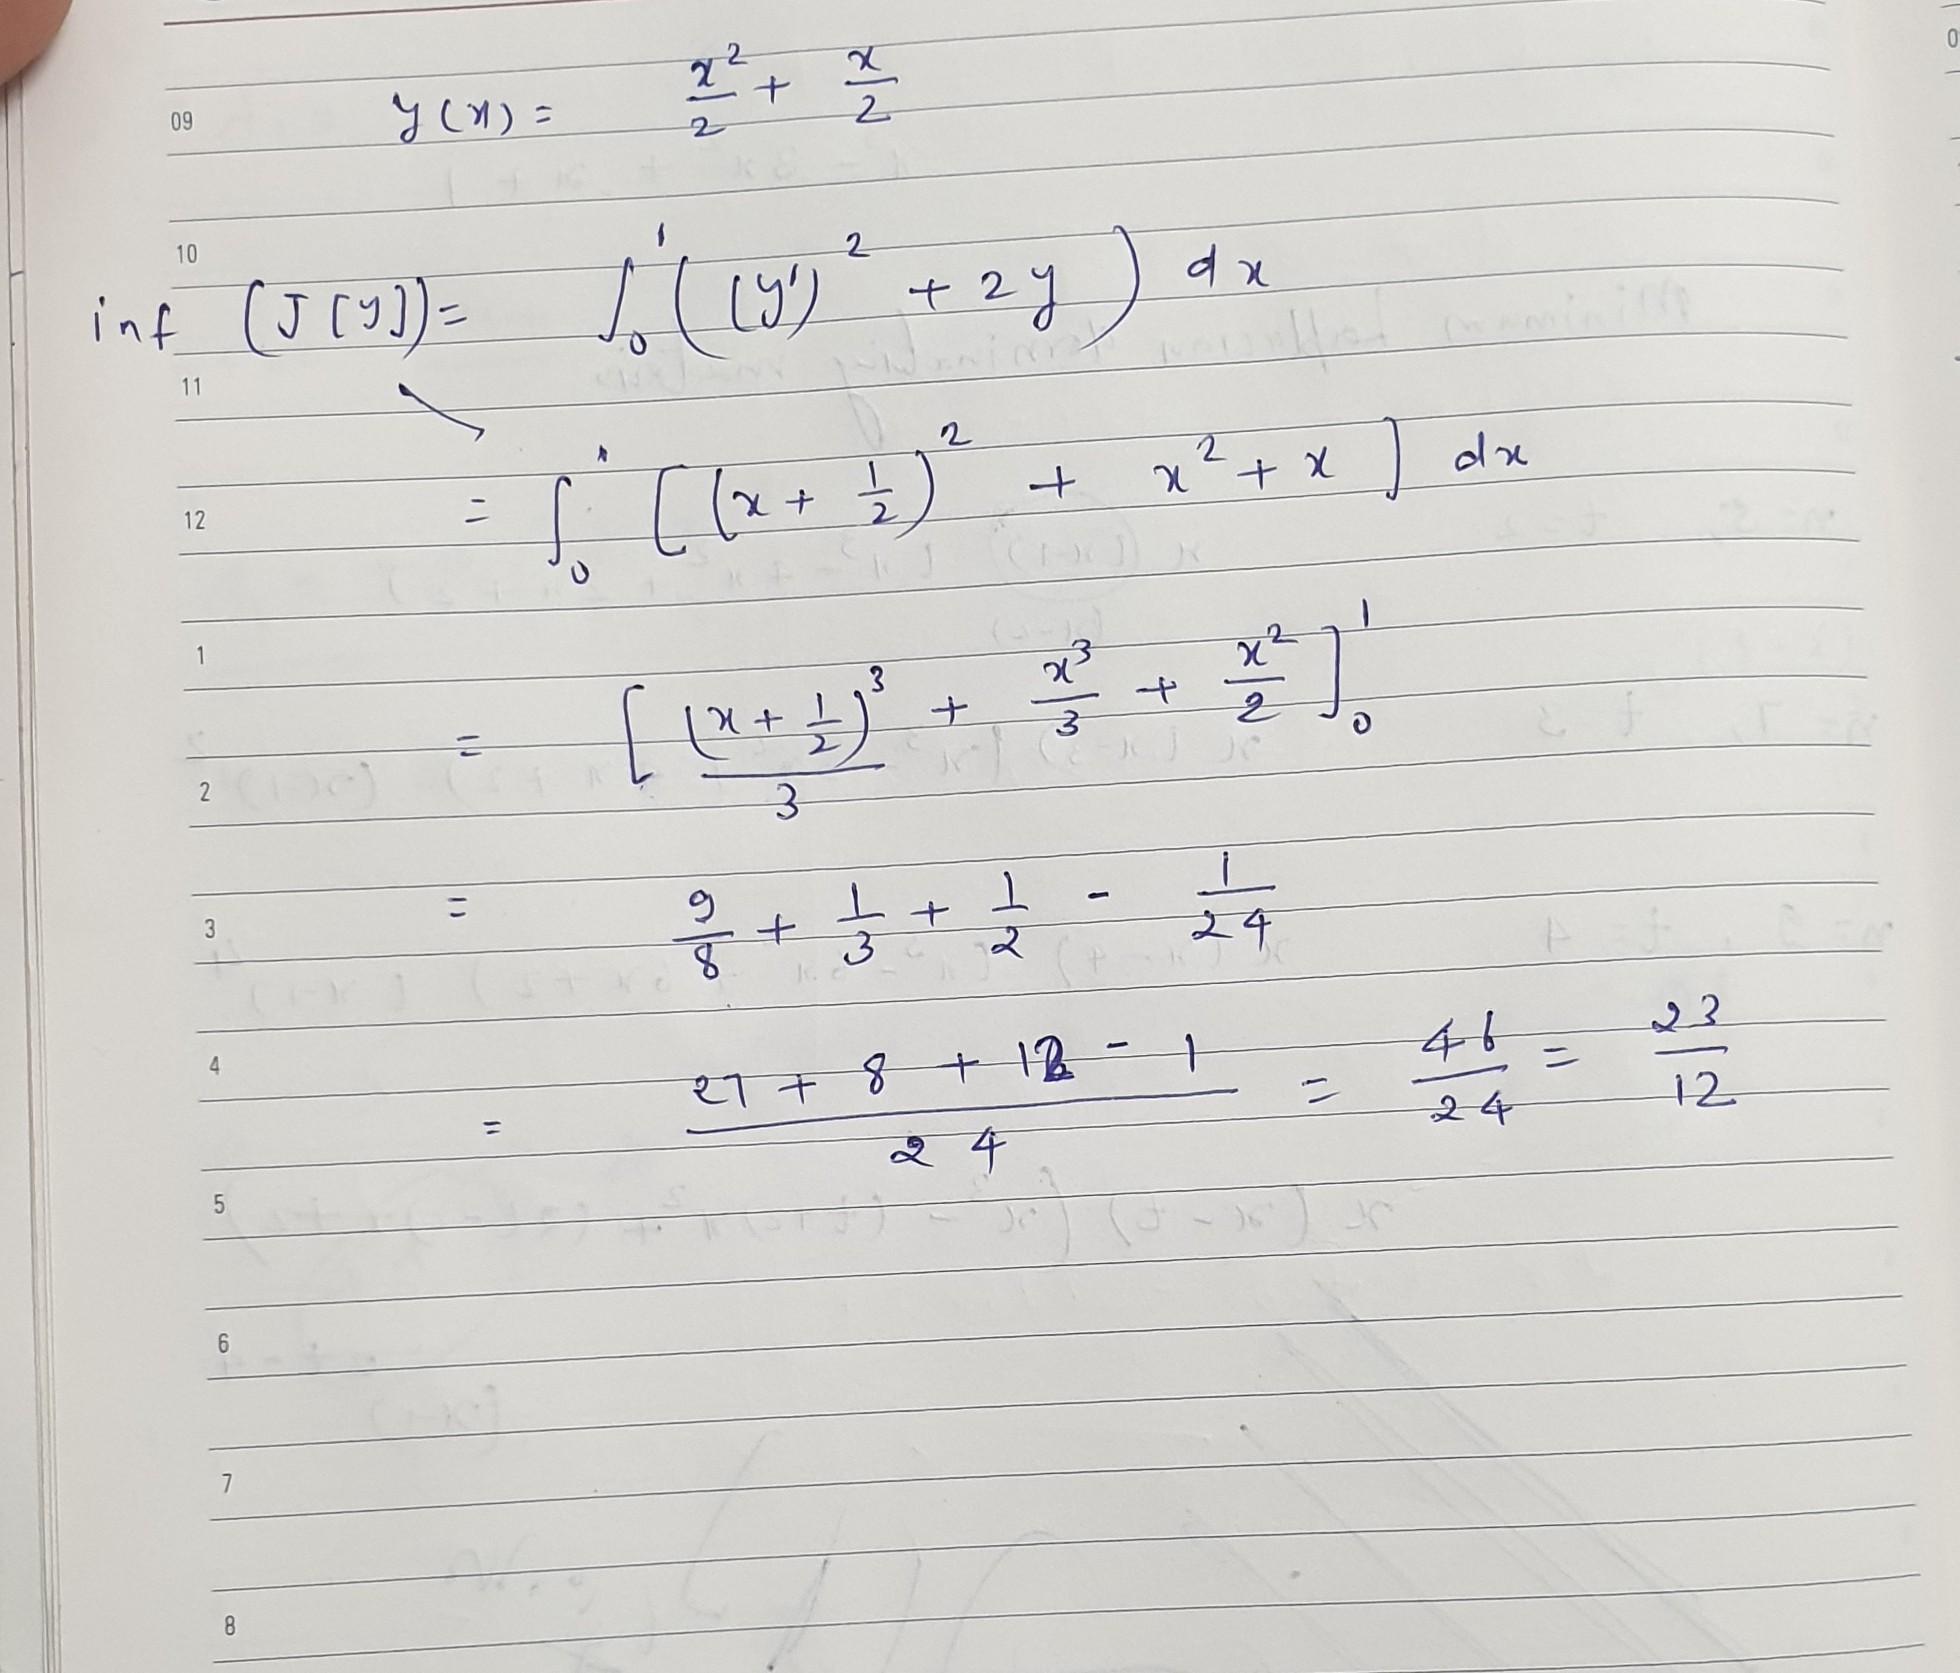 09 y(x) = x²/2 + x/2
10
inf (J[y]) = ∫₀¹ ((y')² + 2y) dx
11
12 = ∫₀¹ [(x + 1/2)² + x² + x] dx
1
= [(x + 1/2)³/3 + x³/3 + x²/2]₀¹
2
3 = 9/8 + 1/3 + 1/2 - 1/24
4
= (27 + 8 + 12 - 1)/24 = 46/24 = 23/12
5
6
7
8